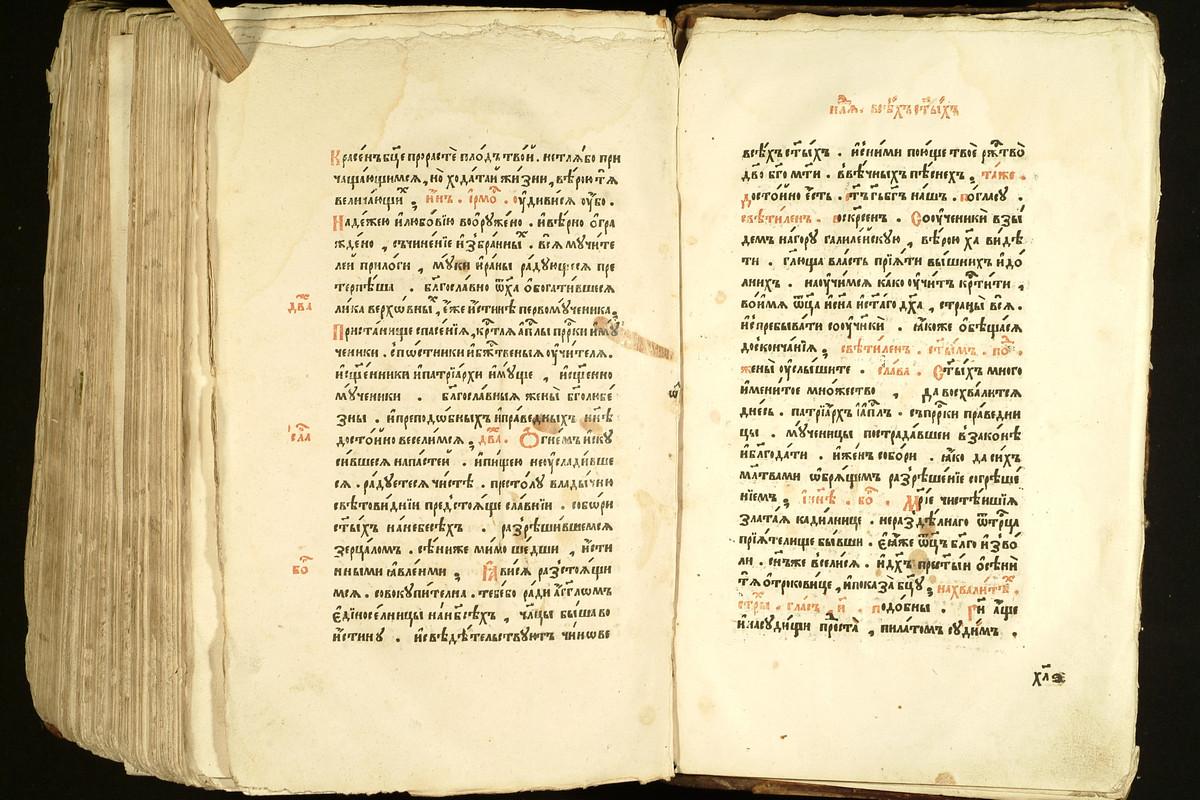 Красе́нъ бц҃е прорастѐ пло́дъ тво́й . нетлѧ́бо при
чаща́ющимсѧ , но̀ хода́тай жи́зни , вѣ́рою тѧ̀
велича́ющи́ х ; ны́нѣ . і҆рмо́с . оу҆диви́сѧ оу҆́бо .
Наде́жею и҆любо́вїю воѻ҆руже́но . и҆вѣ́рно ѻ҆гра
жде́но , съчине́нїе и҆збра́нных . всѧ̀ мучи́те
ле́й прило́ги , му́ки и҆ра́ны ра́дующесѧ пре
терпѣ́ша . бл҃госла́вно ѿх҃а ѻ҆богати́вшесѧ
два
ли́ка верхо́вныѧ , е҆́же и҆́стинѣ первому́ченика .
При́стани́ще спасе́нїѧ , кр҃тлѧ а҆пⷭ҇лы прⷪ҇рки и҆му
че́ники . спо́стники и҆бжⷭ҇твеныѧ оу҆чи́телѧ .
и҆сщ҃е́нники и҆патрїа́рхи и҆му́ще , и҆сщ҃е́нно
му́ченики . бл҃госла́вныѧ жены̀ бг҃олю́бе
зны . и҆преподо́бныхъ и҆пра́ведныхъ ни́нѣ
сла
досто́йно весели́мсѧ , два . Ѻ҆гне́мъ и҆ску
си́вшесѧ напа́стей . и҆пи́щею неоу҆слади́вше
сѧ . ра́дуетесѧ чи́стѣ . престо́лу влады́чню
свѣтови́днїи предстоѧ́ще сла́внїи . собо́ри
ст҃ы́хъ нанебесѣ́хъ . разрѣши́вшемсѧ
зерца́ломъ . сѣ́ни же мимоше́дши , и҆́сти
бо
нными ꙗ҆вле́нми ; Ꙗ҆ви́сѧ разстоѧ́щи
мсѧ . совокупи́телна . тебе́бо ра́ди а҆́гг҃лѡмъ
є҆диносе́лницы нанб҃сѣхъ , чл҃цы бы́ша во
и҆́стину . и҆свѣдѣ́тельствуютъ чи́нове
нⷣлѧ . всѣ́хъ ст҃ы́хъ
всѣ́хъ ст҃ы́хъ . и҆сни́ми пою́ще твоѐ ржⷭ҇тво̀
дв҃о бг҃омт҃и . ввѣ́чныхъ пѣ́снехъ , та́же .
Досто́йно є҆́сть . ст҃ъ гь҃ бг҃ъ на́шъ . по́гласу .
свѣти́ленъ . воскре́сен . Соѹ҆ченики́ взы́
демъ наго́ру галиле́йскую , вѣ́рою х҃а ви́дѣ
ти . гл҃юща вла́сть прїѧ́ти вы́шнихъ и҆до́
лнихъ . наоу҆чи́мсѧ ка́ко оу҆чи́тъ крⷭ҇ти́ти ,
во и҆́мѧ ѻ҆ц҃а и҆сн҃а и҆ст҃а́го дх҃а , страны̀ всѧ̀ .
и҆спребыва́ти соѹ҆ченикѝ . ꙗ҆́коже ѻ҆бѣща́сѧ
досконча́нїѧ ; свѣти́лен . ст҃ы́мъ . по .
жены̀ оу҆слы́шите . сла́ва . Ст҃ы́хъ мно́го
и҆мени́тое мно́жество , да восхва́литсѧ
дне́сь . патрїа́рхъ і҆а҆пⷭ҇лъ . съпрⷪ҇рки пра́ведни
цы . му́ченицы пострада́вшеи взако́нѣ
и҆бл҃года́ти . и҆же́нъ собо́ри . ꙗ҆́ко да си́хъ
мл҃твами ѡ҆брѧ́щемъ разрѣше́нїе согрѣше́
нїемъ ; і҆ ни́нѣ . бо . Мр҃і́е чистѣ́ишїѧ
злата́ѧ кади́лнице . нераздѣ́лнаго ѿтрⷪ҇ца
прїѧ́телище бы́вши . є҆ꙗ҆́же ѻ҆ц҃ъ бл҃го и҆зво́
ли . сн҃ъже вселисѧ . и҆дх҃ъ прест҃ы́и ѻ҆сѣни́
тѧ ѻ҆трокови́це , и҆показа̀ бц҃у ; нахвали́те .
стр҃ы . гла́съ . и҃ . подо́бны . Гдⷭ҇и а҆́ще
и҆насуди́щи проста̀ , пила́томъ суди́мъ .